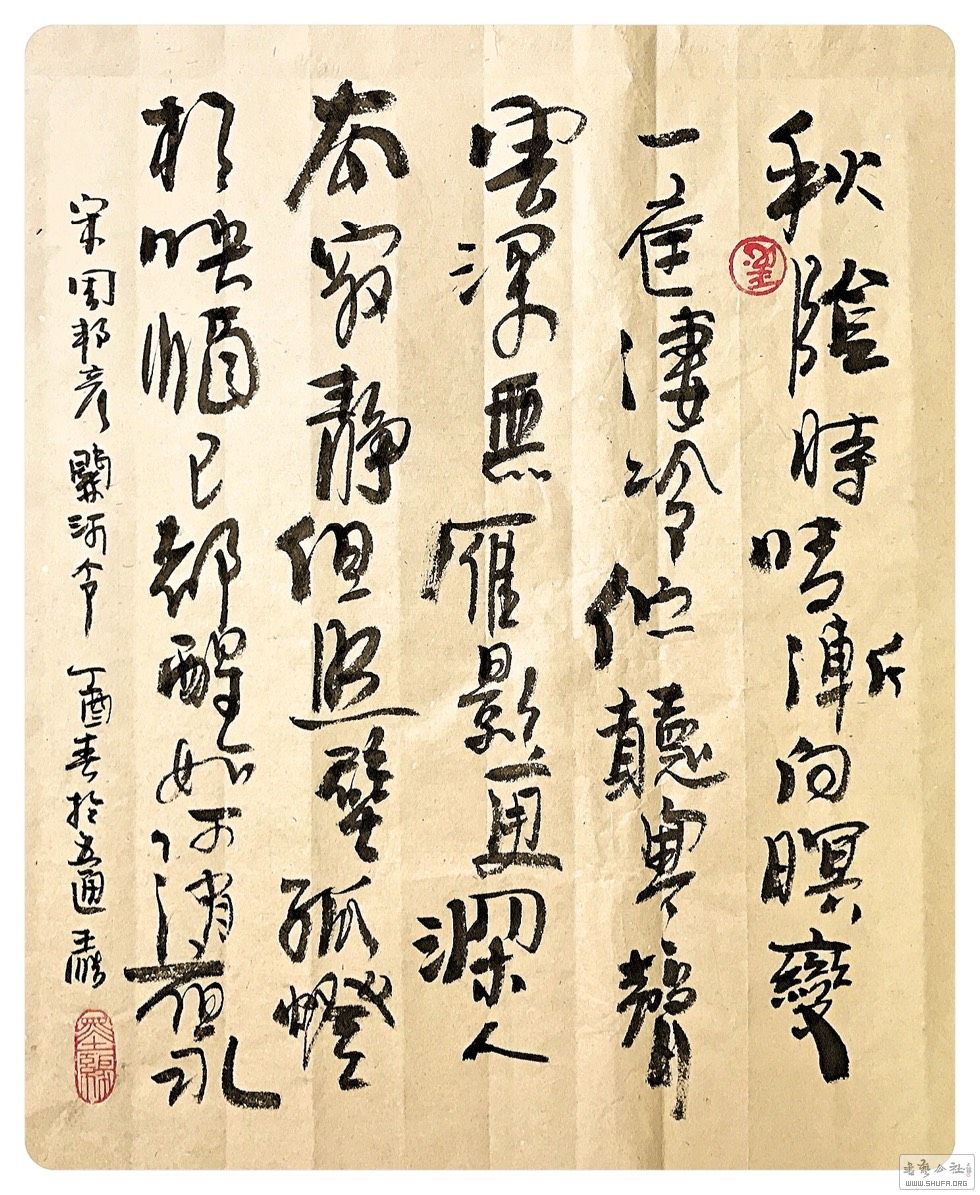 秋陰時晴漸向暝變
一庭淒冷佇聽寒聲
雲深無雁影更深人
去寂靜但照壁孤燈
相映酒已都醒如何消夜永
宋周邦彥關河令 丁酉春於五通
書藝公社
WWW.SHUFA.ORG